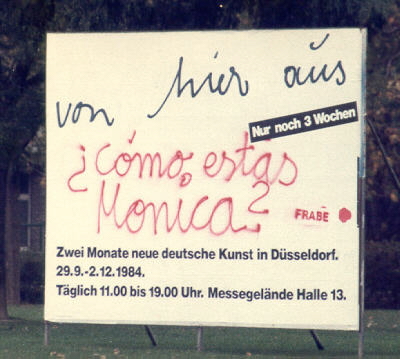 von hier aus
Nur noch 3 Wochen
¿cómo, estás
Monica?
FRABE
Zwei Monate neue deutsche Kunst in Düsseldorf.
29.9.-2.12.1984.
Täglich 11.00 bis 19.00 Uhr. Messegelände Halle 13.